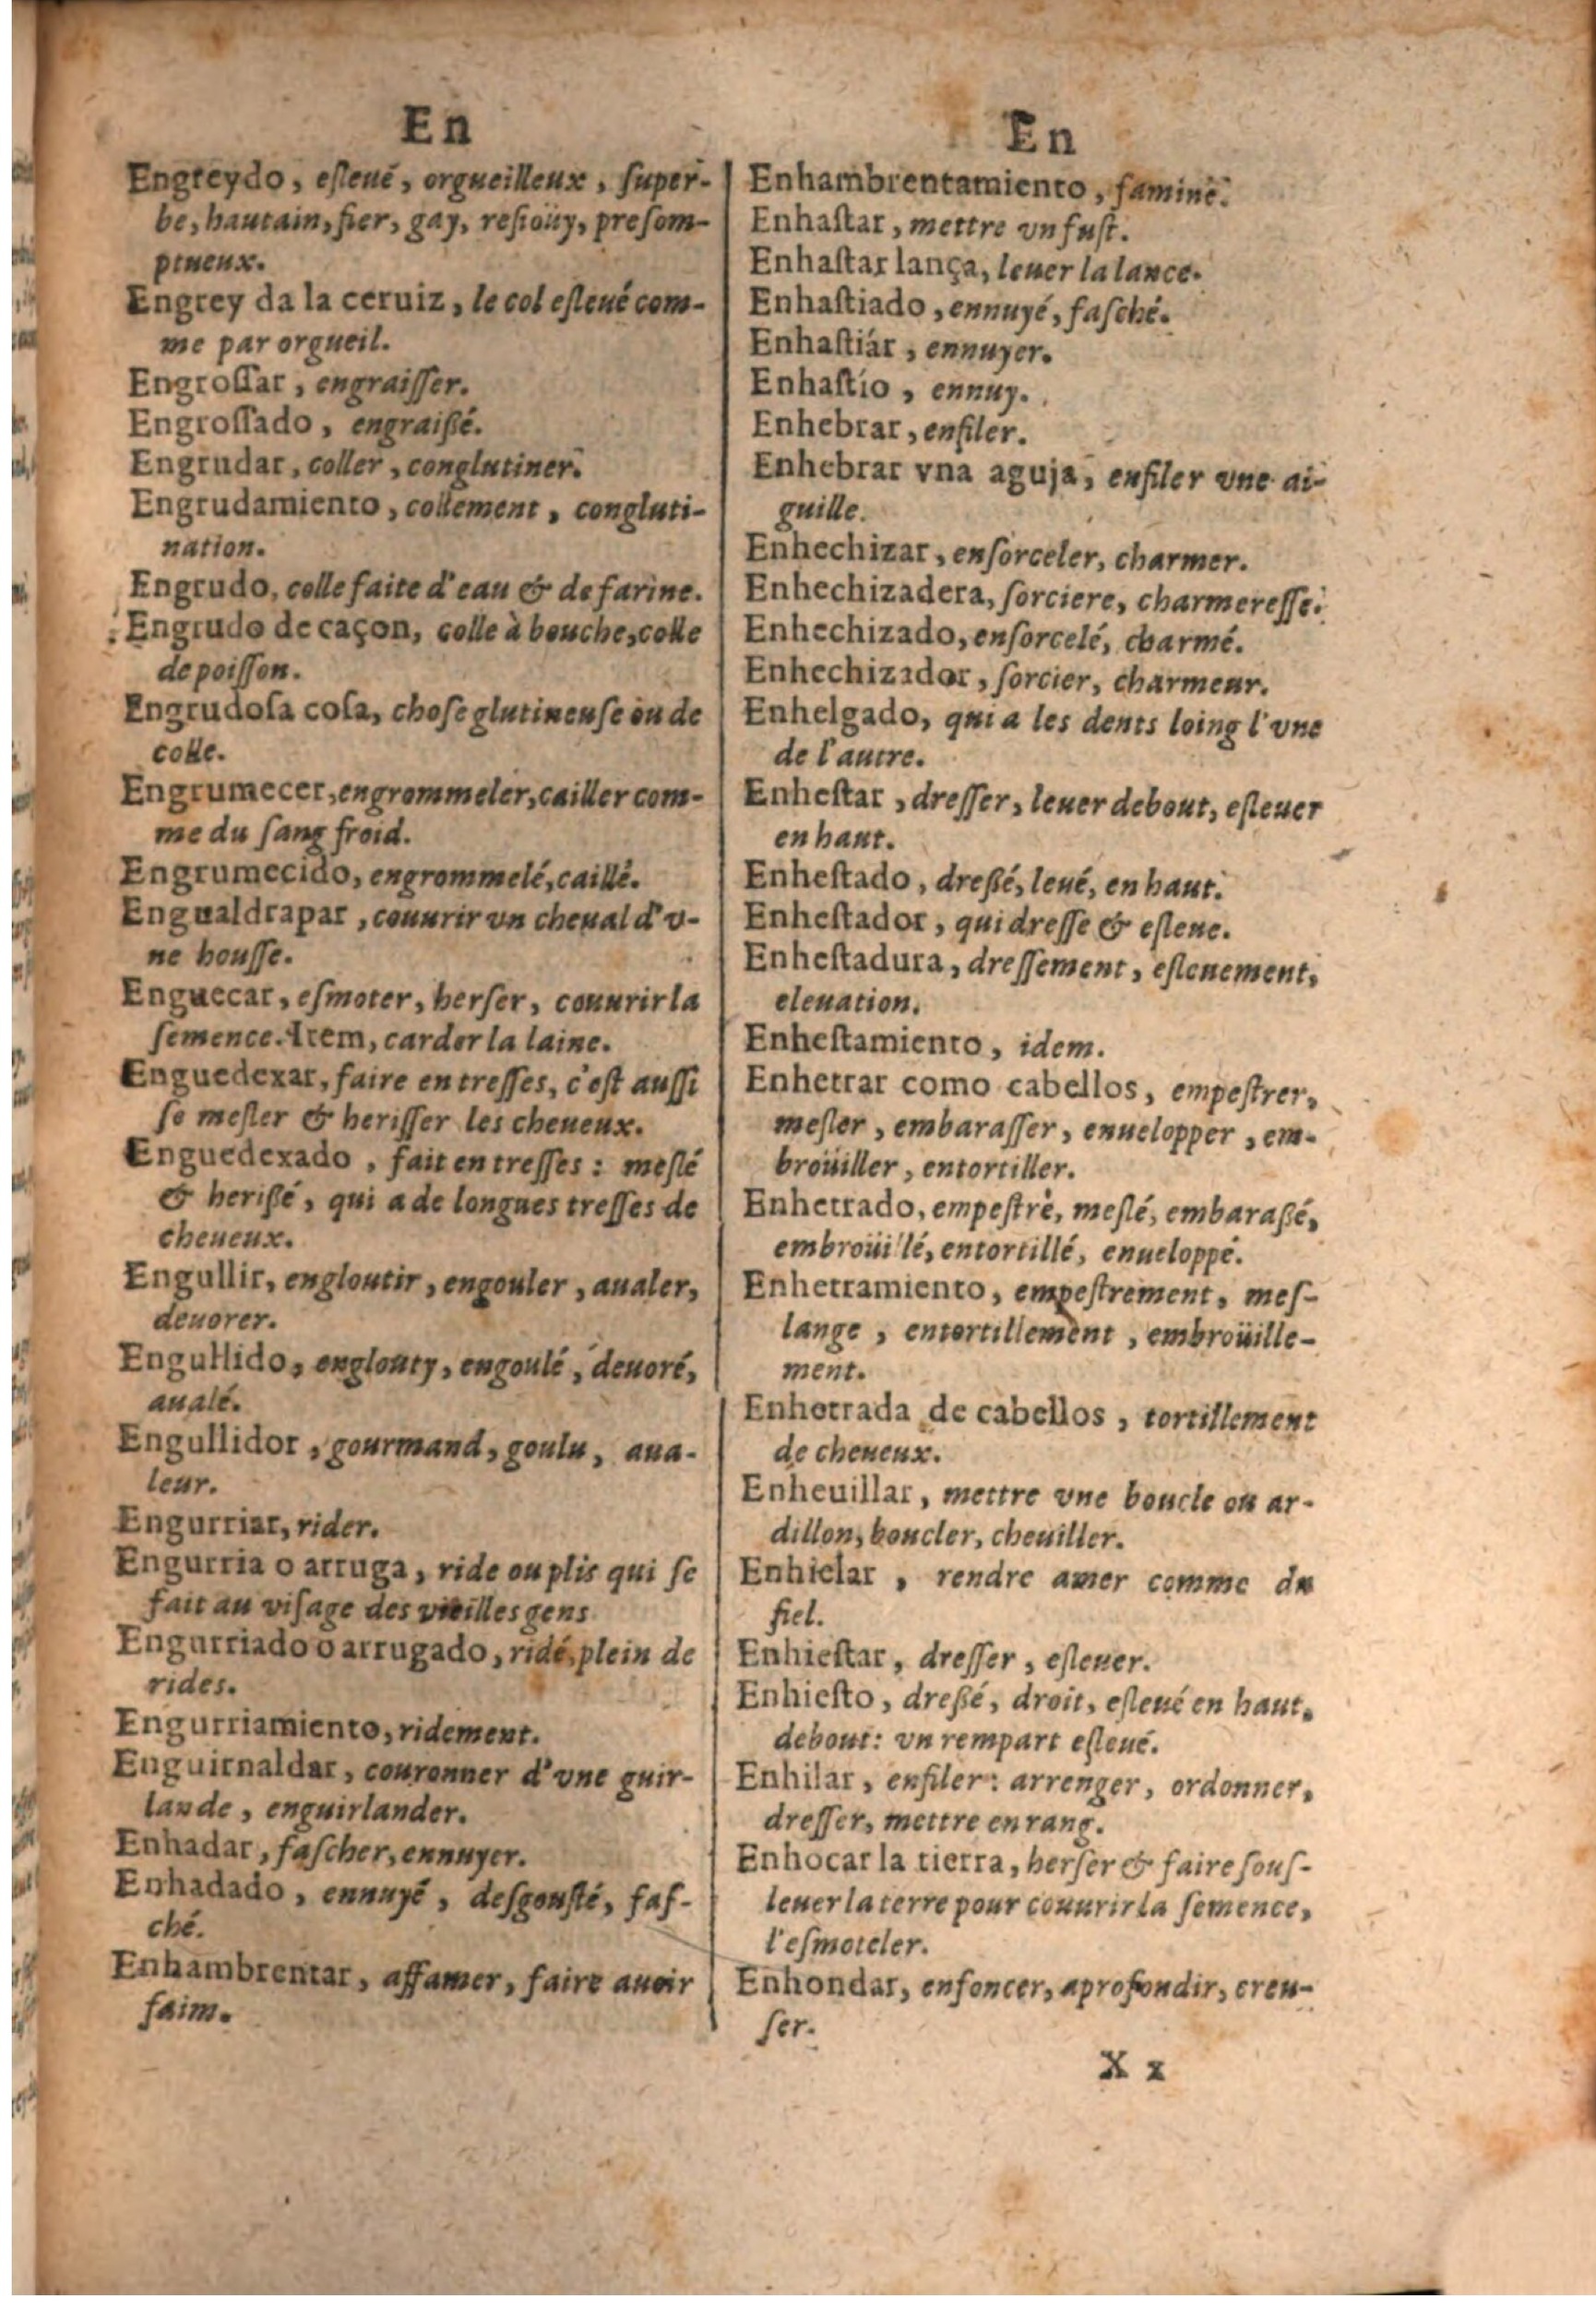 En
Engreydo, eſleué, orgueilleux, ſuper-
be, hautain, fier, gay, reſioüy, preſom-
ptueux.
Engrey da la ceruiz, le col eſleué com-
me par orgueil.
Engroſſar, engraiſſer.
Engroſſado, engraißé.
Engrudar, coller, conglutiner.
Engrudamiento, collement, congluti-
nation.
Engrudo, colle faite d'eau & de farine.
Engrudo de caçon, colle à bouche, colle
de poiſſon.
Engrudoſa coſa, choſe glutineuſe ou de
colle.
Engrumecer, engrommeler, cailler com-
me du ſang froid.
Engrumecido, engrommelé, caillé.
Engualdrapar, couurir vn cheual d'v-
ne houſſe.
Enguecar, eſmoter, herſer, couurir la
ſemence. Item, carder la laine.
Enguedexar, faire en treſſes, c'eſt auſſi
ſe meſler & heriſſer les cheueux.
Enguedexado, fait en treſſes: meſlé
& herißé, qui a de longues treſſes de
cheueux.
Engullir, engloutir, engouler, aualer,
deuorer.
Engullido, englouty, engoulé, deuoré,
aualé.
Engullidor, gourmand, goulu, aua-
leur.
Engurriar, rider.
Engurria o arruga, ride ou plis qui ſe
fait au viſage des vieilles gens
Engurriado o arrugado, ridé, plein de
rides.
Engurriamiento, ridement.
Enguirnaldar, couronner d'vne guir-
lande, enguirlander.
Enhadar, faſcher, ennuyer.
Enhadado, ennuyé, deſgouſté, faſ-
ché.
Enhambrentar, affamer, faire auoir
faim.
En
Enhambrentamiento, famine.
Enhaſtar, mettre vn fuſt.
Enhaſtar lança, leuer la lance.
Enhaſtiado, ennuyé, faſché.
Enhaſtiár, ennuyer.
Enhaſtío, ennuy.
Enhebrar, enfiler.
Enhebrar vna aguja, enfiler vne ai-
guille.
Enhechizar, enſorceler, charmer.
Enhechizadera, ſorciere, charmereſſe.
Enhechizado, enſorcelé, charmé.
Enhechizador, ſorcier, charmeur.
Enhelgado, qui a les dents loing l'vne
de l'autre.
Enheſtar, dreſſer, leuer debout, eſleuer
en haut.
Enheſtado, dreßé, leué, en haut.
Enheſtador, qui dreſſe & eſleue.
Enheſtadura, dreſſement, eſleuement,
eleuation.
Enheſtamiento, idem.
Enhetrar como cabellos, empeſtrer,
meſler, embaraſſer, enuelopper, em-
broüiller, entortiller.
Enhetrado, empeſtré, meſlé, embaraßé,
embroüillé, entortillé, enueloppé.
Enhetramiento, empeſtrement, meſ-
lange, entortillement, embroüille-
ment.
Enhetrada de cabellos, tortillement
de cheueux.
Enheuillar, mettre vne boucle ou ar-
dillon, boucler, cheuiller.
Enhielar, rendre amer comme du
fiel.
Enhieſtar, dreſſer, eſleuer.
Enhieſto, dreßé, droit, eſleué en haut,
debout: vn rempart eſleué.
Enhilar, enfiler: arrenger, ordonner,
dreſſer, mettre en rang.
Enhocar la tierra, herſer & faire ſouſ-
leuer la terre pour couurir la ſemence,
l'eſmoteler.
Enhondar, enfoncer, aprofondir, creu-
ſer.
X x